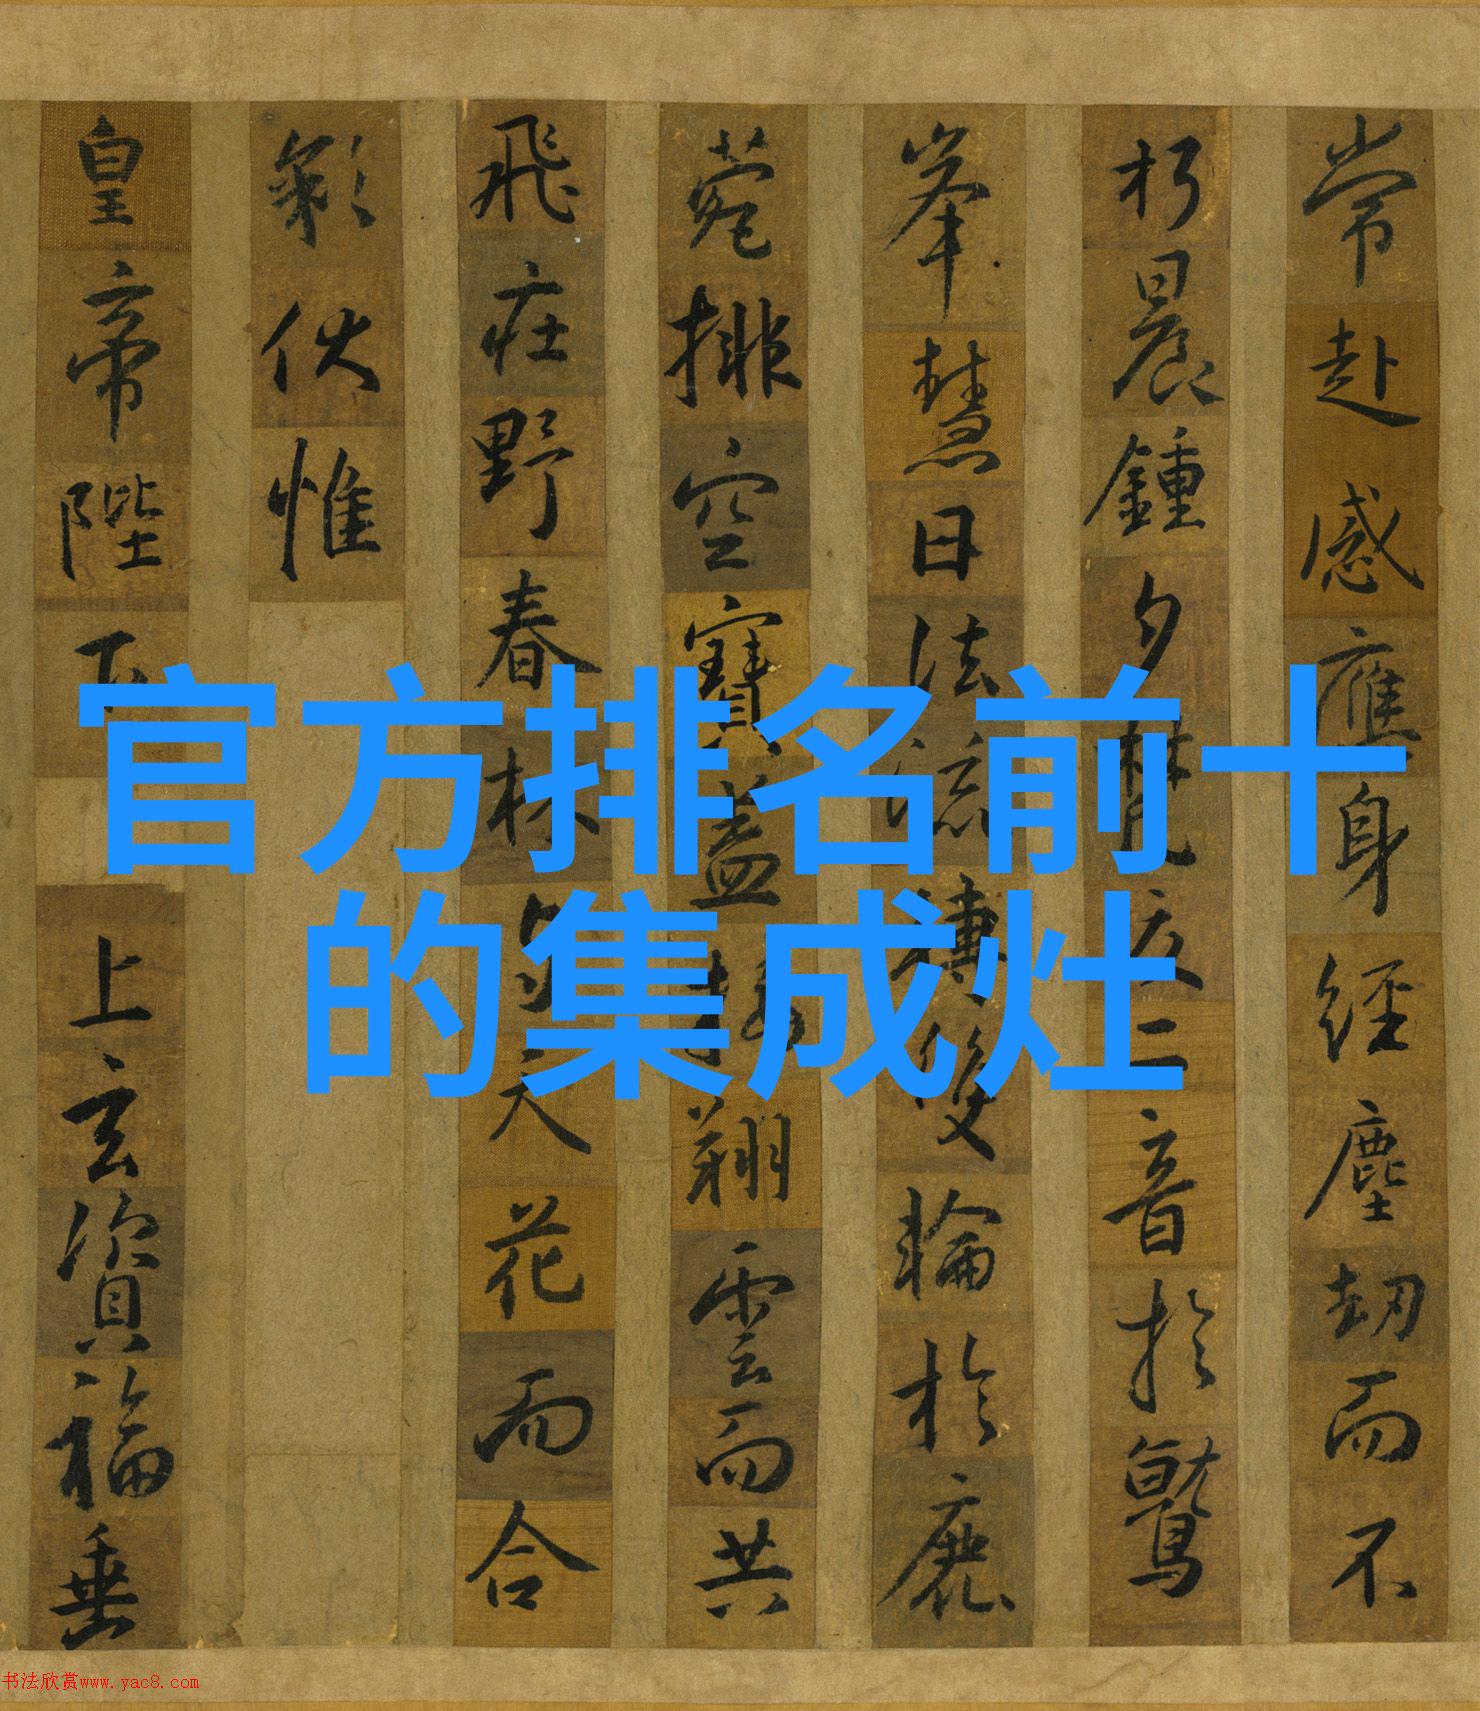 官方排名前十
的集成灶
常赴感應身經塵劫而不
朽晨鍾夕梵交二音於鷲
峯慧日法流轉雙輪於鹿
菀排空寶蓋接翔雲而共
飛莊野春林與天花而合
彩伏惟
皇帝陛下
上玄資福垂
书法欣赏www.yac8.com